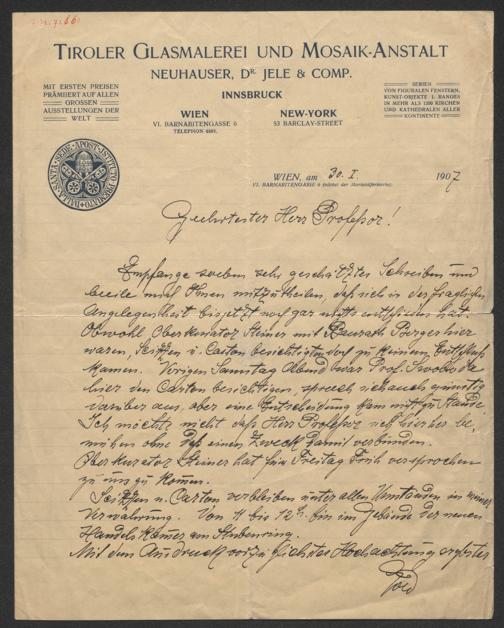 TIROLER GLASMALEREI UND MOSAIK-ANSTALT
NEUHAUSER, DR. JELE & COMP.
INNSBRUCK
MIT ERSTEN PREISEN
PRÄMIIERT AUF ALLEN
GROSSEN
AUSSTELLUNGEN DER
WELT
WIEN
VI. BARNABITENGASSE 6
TELEPHON
NEW-YORK
53 BARCLAY-STREET
SERIEN
VON FIGURALEN FENSTERN,
KUNST-OBJEKTE I. RANGES
IN MEHR ALS 1200 KIRCHEN
UND KATHEDRALEN ALLER
KONTINENTE
WIEN, am 30. I. 1907
VI. BARNABITENGASSE 6 (nächst der Mariahilferkirche).
Geehrtester Herr Professor!
Empfange soeben sehr geschätztes Schreiben und
beeile mich Ihnen mitzutheilen, daß sich in der fraglichen
Angelegenheit bis jetzt noch gar nichts entschieden hat.
Obwohl Oberkurator Steiner mit Baurath Berger hier
waren, Skizzen u. Carton besichtigten doch zu keinem Entschluß
kamen. Vorigen Samstag Abend war Prof.
hier den Carton besichtigen, sprach sich auch günstig
darüber aus, aber eine Entscheidung kam nicht zu Stande.
Ich möchte nicht daß Herr Professor sich hierher be,
mühen ohne daß einen Zweck damit verbinden.
Oberkurator Steiner hat für Freitag Früh versprochen
zu uns zu kommen.
Skizzen u. Carton verbleiben unter allen Umständen in meiner
Verwahrung. Von 11 bis 12 h. bin im Gebäude der neuen
Handelskammer am Stubenring.
Mit dem Ausdruck vorzüglichster Hochachtung